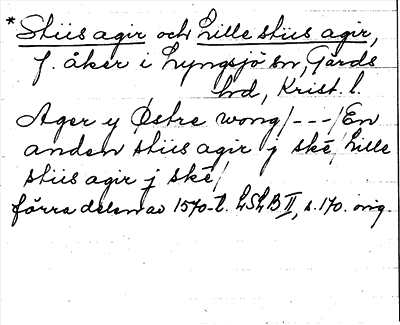 *Stiis agir och Lille stiis agir,
f. åker i Lyngsjö sn, Gärds
hd, Krist. l.
Ager y Østre wong/---/En
anden stiis agir j ské/Lille
stiis agir j ské/
förra delen av 1570-t. LSLB II, s. 170. orig.